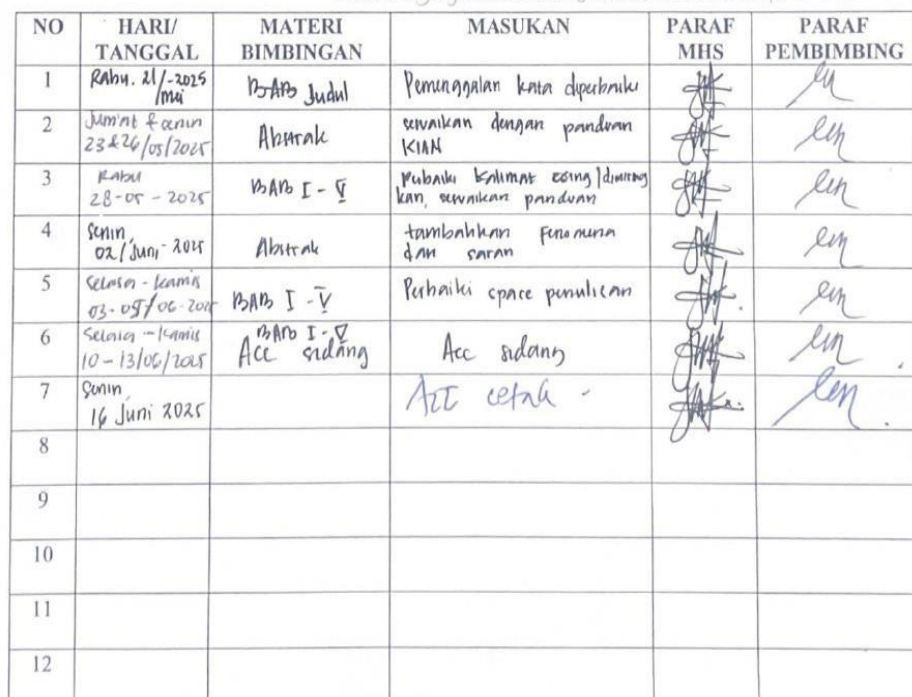 NO HARI/ TANGGAL MATERI BIMBINGAN MASUKAN PARAF MHS PARAF PEMBIMBING
1 Rabu. 21/-2025 /mei BAB Judul Pemenggalan kata diperbaiki
2 Jum'at & senin 23 & 26/05/2025 Abstrak sesuaikan dengan panduan KIAN
3 Rabu 28-05-2025 BAB I - V perbaiki kalimat asing/dimiring kan, sesuaikan panduan
4 Senin, 02/Juni-2025 Abstrak tambahkan Fenomena dan saran
5 Selasa - Kamis 03-05/06-2025 BAB I - V Perbaiki space penulisan
6 Selasa - Kamis 10-13/06/2025 BAB I - V Acc sidang Acc sidang
7 Senin, 16 Juni 2025 Acc cetak
8
9
10
11
12